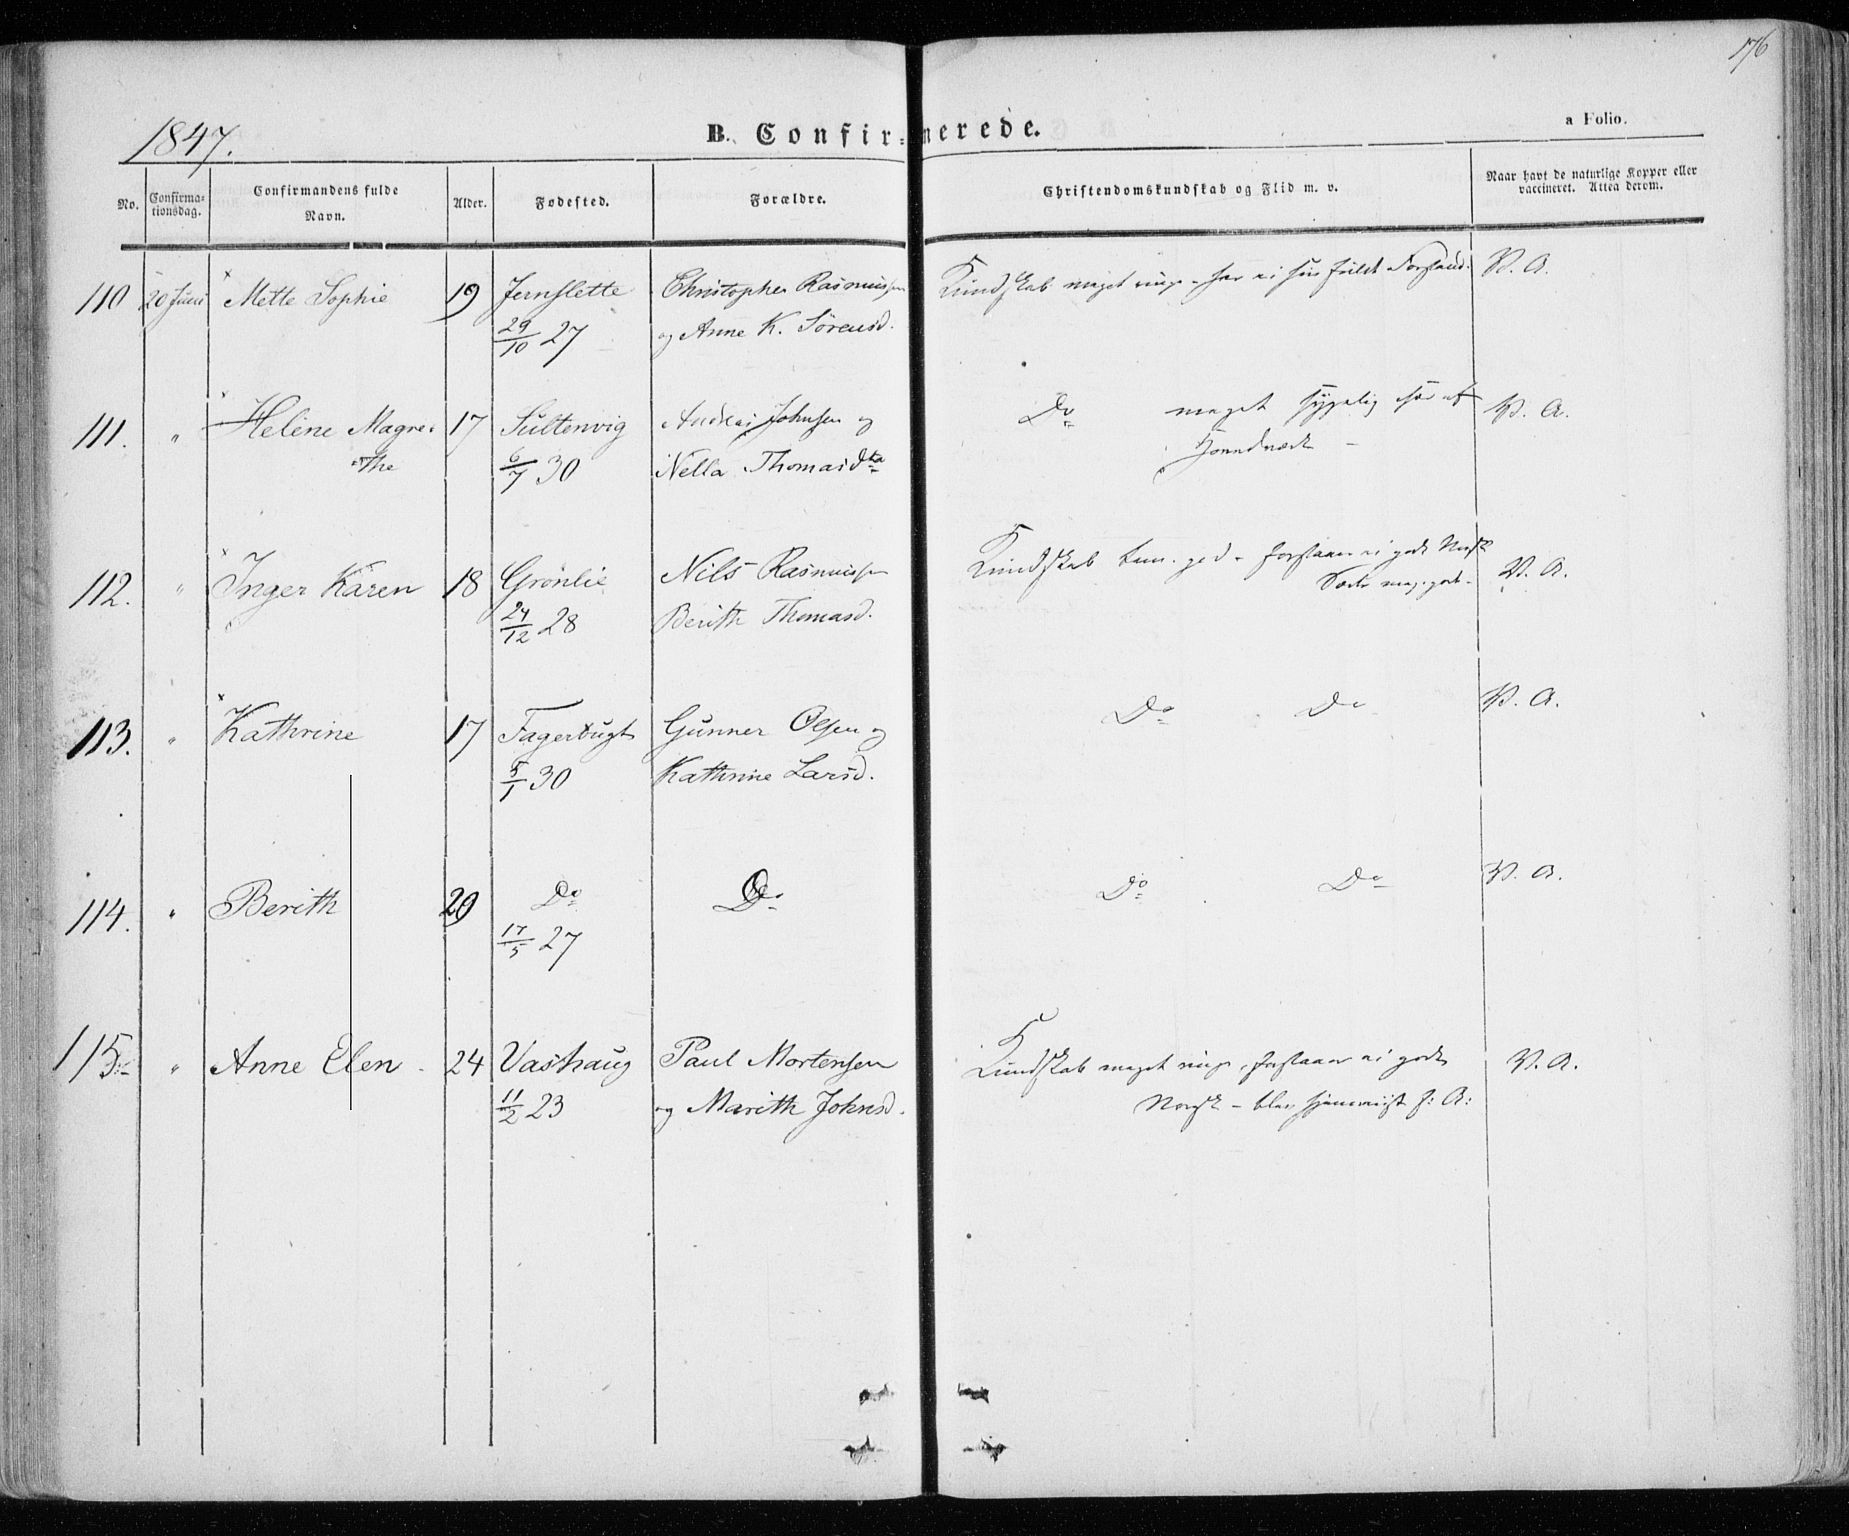 176
1847.
B. Confirmerede.
a Folio.
No.
Confirma-
tionsdag.
Confirmandens fulde
Navn.
Alder.
Fødested.
Forældre.
Christendomskundskab og Flid m. v.
Naar havt de naturlige Kopper eller
vaccineret. Attea derom.
110 20 Juni Mette Sophie 19 Jernslette Christopher Rasmussen Kundskab meget ringe - har ei sin fulde Forstand. V. A.
29/10 27 og Anne K. Sörensd.
111. " Helene Magre- 17 Sultenvig Andreas Johnsen og Do meget sygelig V. A.
the 6/7 30 Nella Thomasdtr
112. " Inger Karen 18 Grönlie Nils Rasmussen Kundskab tem. god - forstaaer ei godt Norsk V. A.
24/12 28 Berith Thomasd.
113. " Kathrine 17 Fagerbugt Gunner Olsen og Do Do V. A.
5/1 30 Kathrine Larsd.
114. " Berith 20 Do Do Do Do V. A.
17/5 27
115 " Anne Elen 24 Vashaug Paul Mortensen Kundskab meget ringe, forstaaer ei godt V. A.
11/2 23 og Marith Johnsd. Norsk - blev hjemviist f: A: